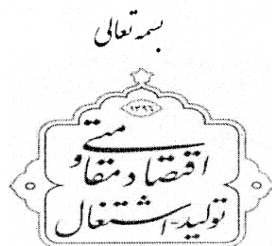 بسمه تعالی
۱۳۹۶
اقتصاد مقاومتی
تولید-اشتغال